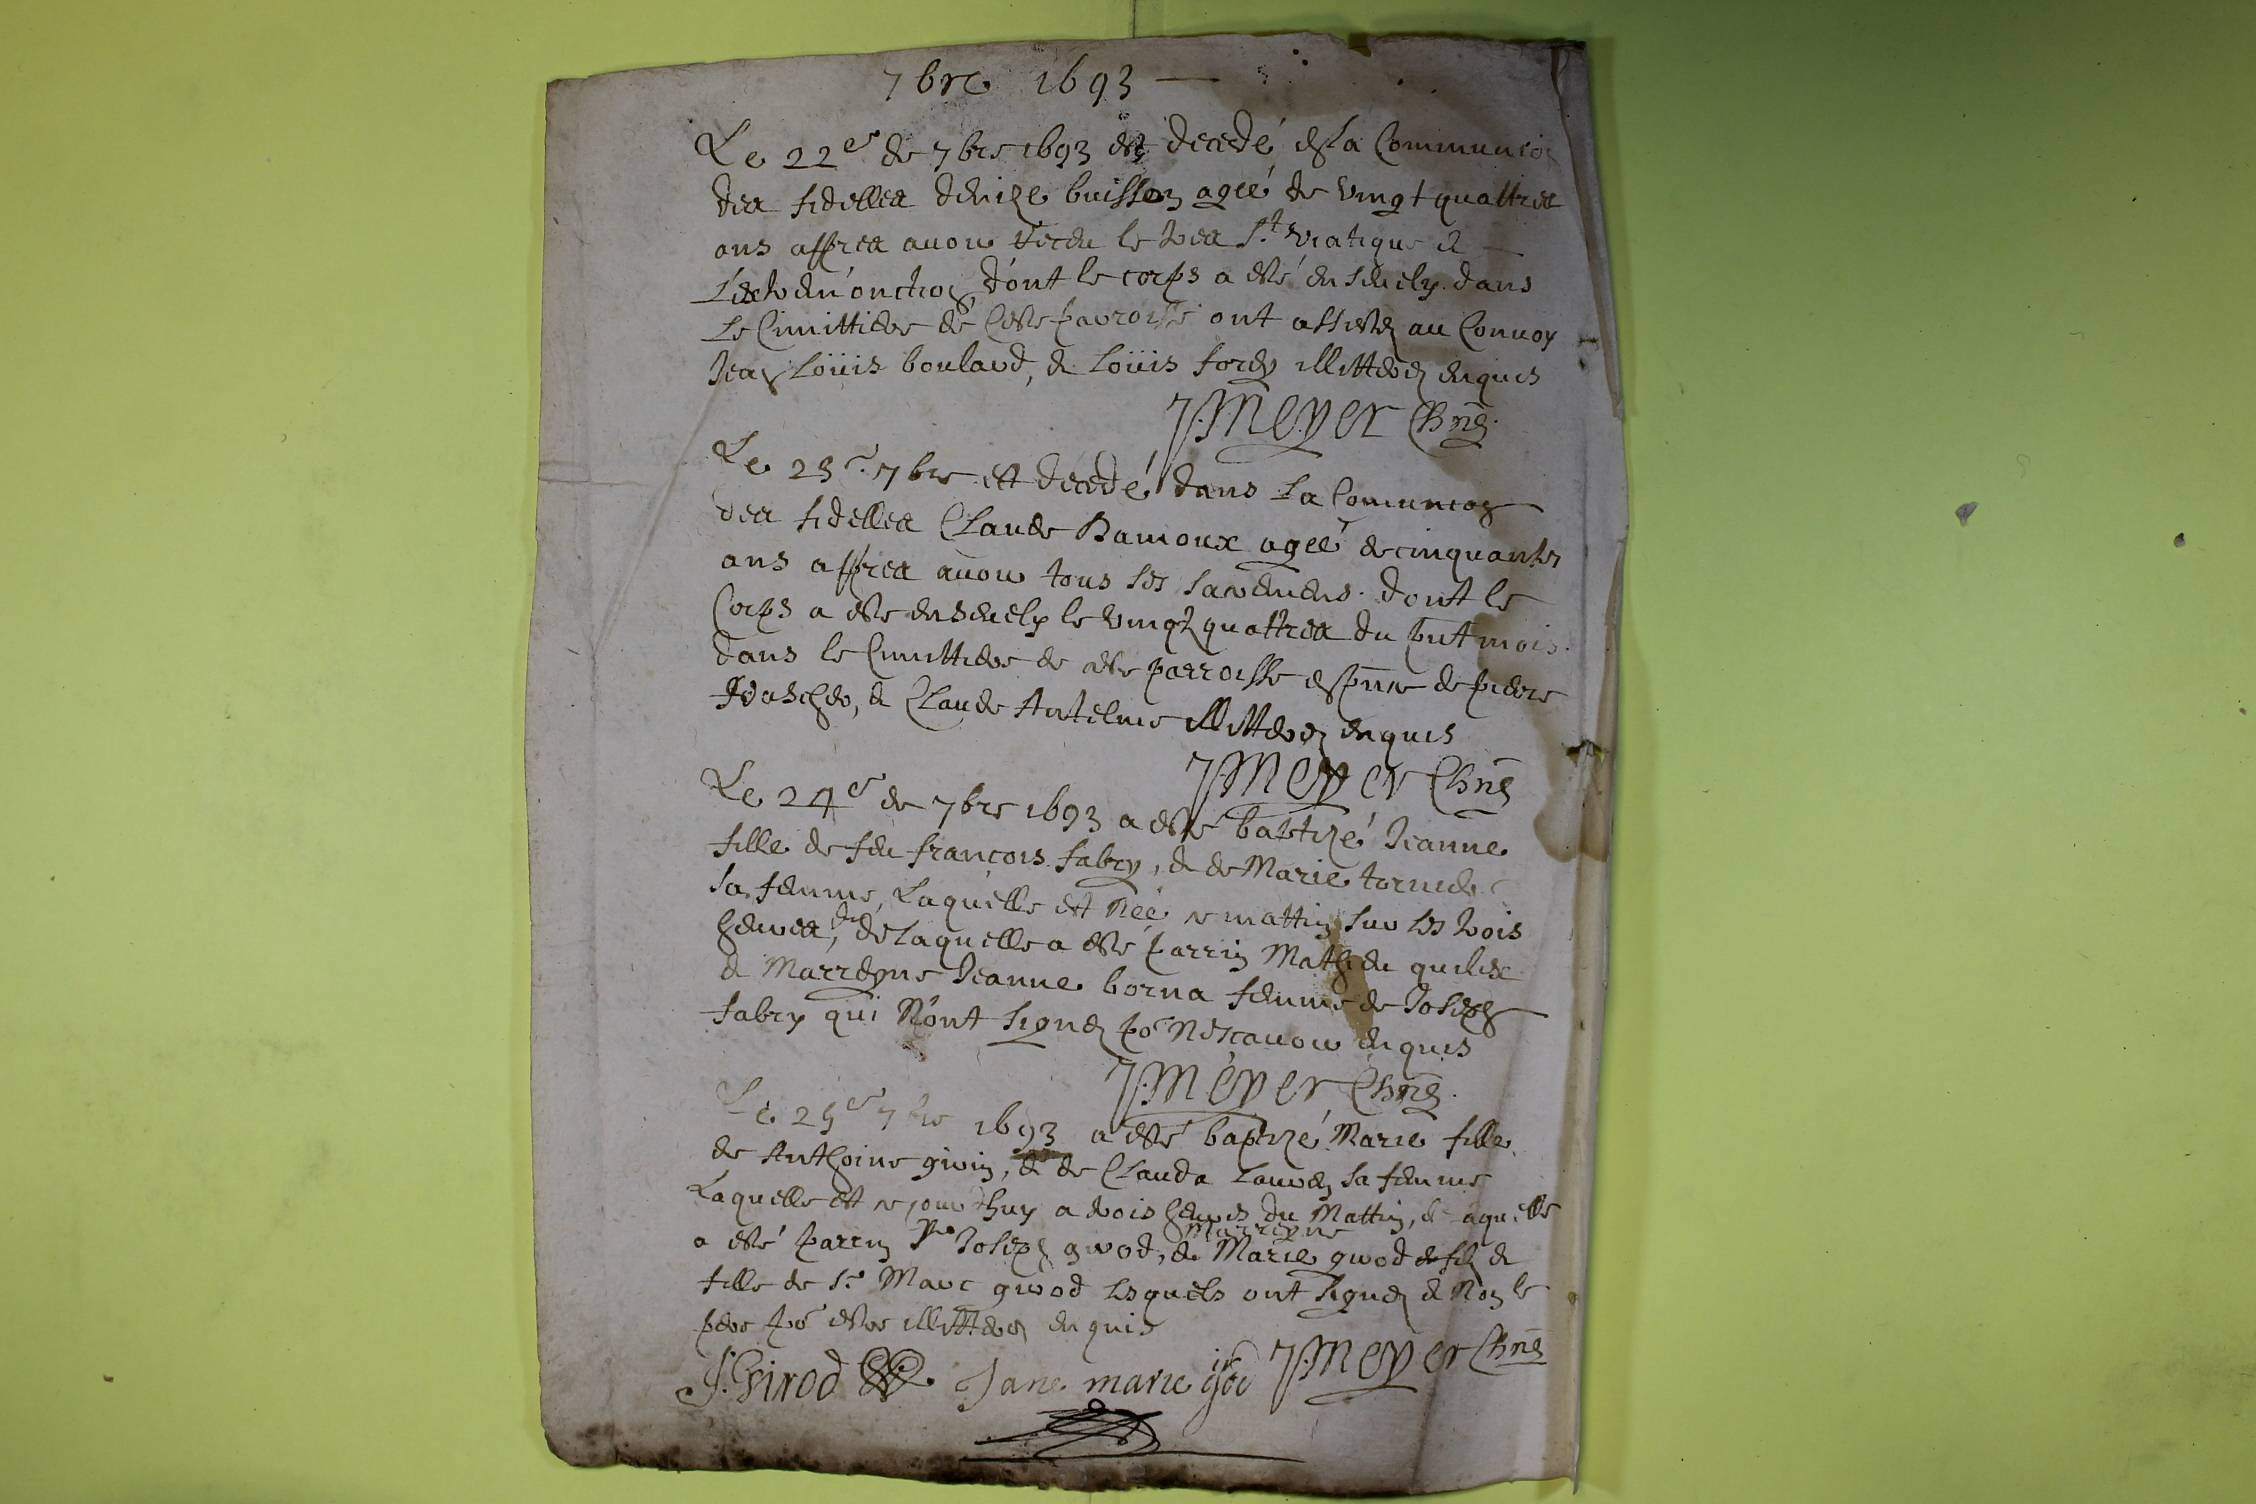 7bre 1693
Le 22e de 7bre 1693 est decedé en la Communion
des fidelles denize buisson ageé de vingt quattres
ans appres auoir receu le tres St viatique et
L'extrem'onction, dont le corps a esté enseuely dans
le Cimittiere de cette parroisse ont assistez au Conuoy
Jean Loüis boulard, et Loüis forey illitterez enquis
J. Meyer
Le 23e 7bre est decedé dans la Comunion
des fidelles Claude Ramoux ageé de cinquante
ans appres auoir tous ses sacremens. dont le
Corps a esté enseuely le vingt quattres du pnt mois
dans le Cimittiere de cette parroisse en pnce de pierre
et Claude Antelme illitterez enquis
J. Meyer
Le 24e de 7bre 1693 a esté baptizé Jeanne
fille de feu francois fabry, et de Marie
sa femme, Laquelle est neé ce mattin sur les trois
heures, de laquelle a esté parrin Mathieu
et Marreyne Jeanne borna femme de Joseph
fabry qui n'ont signez po. ne scauoir enquis
J. Meyer
Le 25e 7bre 1693 a esté baptizé Marie fille
de Anthoine girin, et de Clauda sa femme
Laquelle est ce jourdhuy a trois heures du Mattin, de laquelle
a esté parrin Joseph girod, et Marreyne Marie girod et
fille de sr. Marc girod lesquels ont signez et non le
pere po. estre illitterez enquis
J. Girod Jane marie J. Meyer